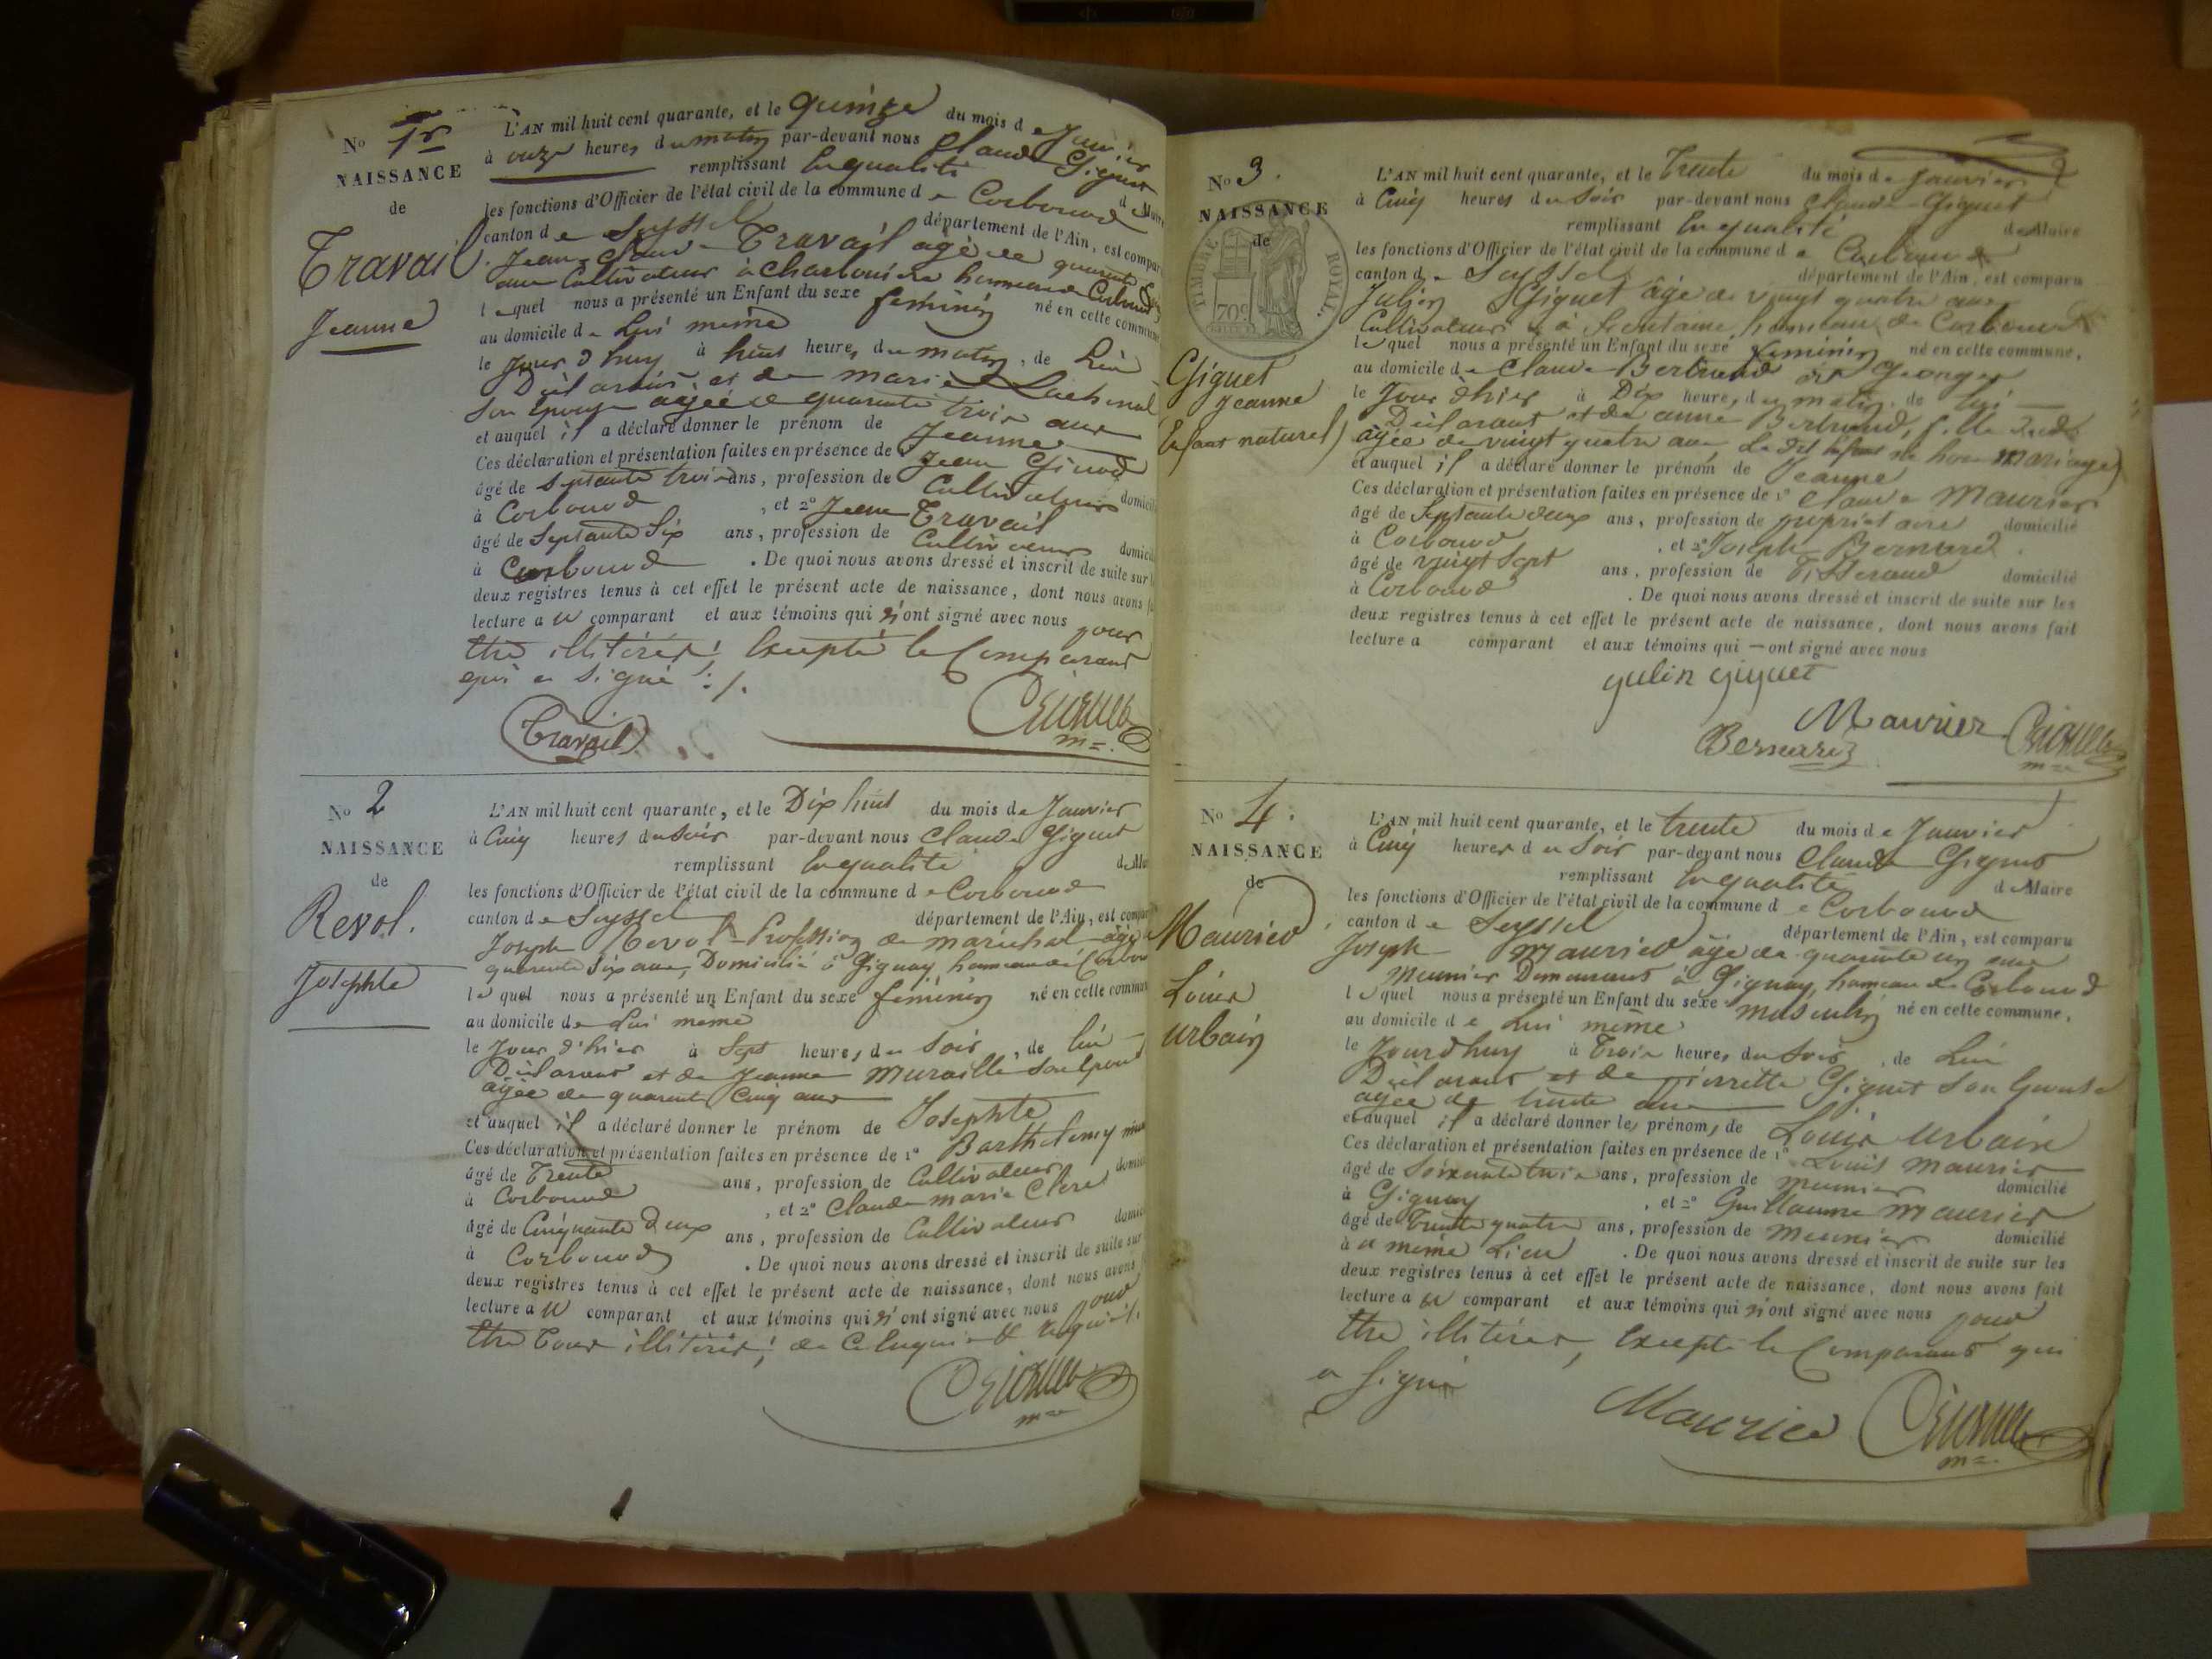 No 1r
NAISSANCE
de
Travail
Jeanne
L'AN mil huit cent quarante, et le quinze du mois de Janvier
à onze heures du matin par-devant nous Claude Giguet
remplissant en qualité de Maire
les fonctions d'Officier de l'état civil de la commune de Corbonod
canton de Seyssel département de l'Ain, est comparu
Jean Claude Travail agé de quarante
ans Cultivateur à Charbonière hameau de Corbonod
lequel nous a présenté un Enfant du sexe féminin né en cette commune
au domicile de Lui même
le Jour d'huy à huit heures du matin, de Lui
Déclarant et de marie Lachenal
Son épouse agée de quarante trois ans
et auquel il a déclaré donner le prénom de Jeanne
Ces déclaration et présentation faites en présence de 1º Jean Ginod
âgé de Septante trois ans, profession de Cultivateur domicilié
à Corbonod, et 2º Jean Travail
âgé de Septante Six ans, profession de Cultivateur domicilié
à Corbonod. De quoi nous avons dressé et inscrit de suite sur les
deux registres tenus à cet effet le présent acte de naissance, dont nous avons fait
lecture au comparant et aux témoins qui n'ont signé avec nous pour
être illitérés, Excepté le Comparant
qui a Signé ./.
Travail Giguet
m=.
No 2
NAISSANCE
de
Revol.
Josephte
L'AN mil huit cent quarante, et le Dix huit du mois de Janvier
à Cinq heures du Soir par-devant nous Claude Giguet
remplissant en qualité de Maire
les fonctions d'Officier de l'état civil de la commune de Corbonod
canton de Seyssel département de l'Ain, est comparu
Joseph Revol Profession de maréchal âgé de
quarante Six ans, Domicilié à Gignay, hameau de Corbonod
lequel nous a présenté un Enfant du sexe féminin né en cette commune
au domicile de Lui meme
le Jour d'hier à Sept heures du Soir, de lui
Déclarant et de Jeanne Muraille Son Epouse
âgée de quarante Cinq ans
et auquel il a déclaré donner le prénom de Josephte
Ces déclaration et présentation faites en présence de 1º Barthelemy
âgé de Trente ans, profession de Cultivateur domicilié
à Corbonod, et 2º Claude marie Clerc
âgé de Cinquante Deux ans, profession de Cultivateur domicilié
à Corbonod. De quoi nous avons dressé et inscrit de suite sur
deux registres tenus à cet effet le présent acte de naissance, dont nous avons
lecture au comparant et aux témoins qui n'ont signé avec nous pour
être Tous illitérés; de Ce Enquis & Requis ./.
Giguet
m=
No 3.
NAISSANCE
de
TIMBRE ROYAL
70c
Giguet
Jeanne
(Enfant naturel)
L'AN mil huit cent quarante, et le Trente du mois de Janvier
à Cinq heures du Soir par-devant nous Claude Giguet
remplissant en qualité de Maire
les fonctions d'Officier de l'état civil de la commune de Corbonod
canton de Seyssel département de l'Ain, est comparu
Julien Giguet âgé de vingt quatre ans
Cultivateur à fontaine, hameau de Corbonod
lequel nous a présenté un Enfant du sexe féminin né en cette commune,
au domicile de Claude Bertrand dit Georges
le Jour d'hier à Dix heures du matin, de lui
Déclarant et de anne Bertrand, fille
âgée de vingt quatre ans, Le Dit Enfant né hors mariage)
et auquel il a déclaré donner le prénom de Jeanne
Ces déclaration et présentation faites en présence de 1º Claude Maurier
âgé de Septante deux ans, profession de propriétaire domicilié
à Corbonod, et 2º Joseph Bernard.
âgé de vingt Sept ans, profession de Tisserand domicilié
à Corbonod. De quoi nous avons dressé et inscrit de suite sur les
deux registres tenus à cet effet le présent acte de naissance, dont nous avons fait
lecture a comparant et aux témoins qui — ont signé avec nous
gulin giguet
Maurier Giguet
Bernard m=
No 4.
NAISSANCE
de
Maurier
Louis
urbain
L'AN mil huit cent quarante, et le trente du mois de Janvier
à Cinq heures du Soir par-devant nous Claude Giguet
remplissant en qualité de Maire
les fonctions d'Officier de l'état civil de la commune de Corbonod
canton de Seyssel département de l'Ain, est comparu
Joseph Maurier âgé de quarante un ans
Meunier Demeurant à Gignay, hameau de Corbonod
lequel nous a présenté un Enfant du sexe masculin né en cette commune,
au domicile de Lui même
le Jourdhuy à Trois heures du Soir, de Lui
Déclarant et de Pierrette Giguet Son Epouse
agée de trente ans
et auquel il a déclaré donner les prénoms de Louis Urbain
Ces déclaration et présentation faites en présence de 1º Louis Maurier
âgé de Soixante trois ans, profession de meunier domicilié
à Gignay, et 2º Guillaume Maurier
âgé de Trente quatre ans, profession de Meunier domicilié
à u même Lieu. De quoi nous avons dressé et inscrit de suite sur les
deux registres tenus à cet effet le présent acte de naissance, dont nous avons fait
lecture au comparant et aux témoins qui n'ont signé avec nous pour
être illitérés, Excepté le Comparant qui
a Signé
Maurier Giguet
m=.